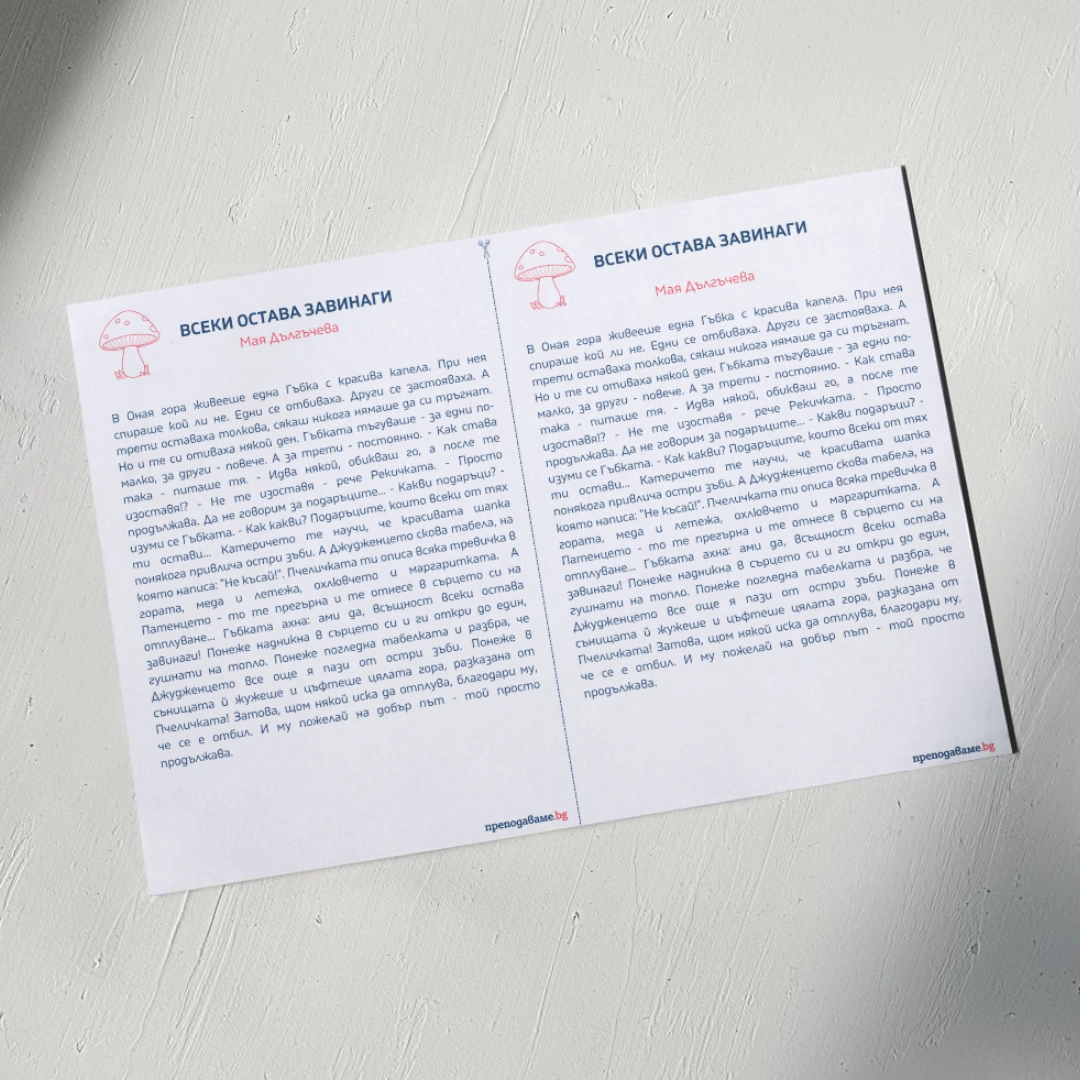 ВСЕКИ ОСТАВА ЗАВИНАГИ
Мая Дългъчева
В Оная гора живееше една Гъбка с красива капела. При нея
спираше кой ли не. Едни се отбиваха. Други се застояваха. А
трети оставаха толкова, сякаш никога нямаше да си тръгнат.
Но и те си отиваха някой ден. Гъбката тъгуваше - за едни по-
малко, за други - повече. А за трети - постоянно. - Как става
така - питаше тя. - Идва някой, обикваш го, а после те
изоставя!? - Не те изоставя - рече Рекичката. - Просто
продължава. Да не говорим за подаръците... - Какви подаръци? -
изуми се Гъбката. - Как какви? Подаръците, които всеки от тях
ти остави... Катеричето те научи, че красивата шапка
понякога привлича остри зъби. А Джудженцето скова табела, на
която написа: "Не късай!". Пчеличката ти описа всяка тревичка в
гората, меда и летежа, охлювчето и маргаритката. А
Патенцето - то те прегърна и те отнесе в сърцето си на
отплуване... Гъбката ахна: ами да, всъщност всеки остава
завинаги! Понеже надникна в сърцето си и ги откри до един,
гушнати на топло. Понеже погледна табелката и разбра, че
Джудженцето все още я пази от остри зъби. Понеже в
сънищата й жужеше и цъфтеше цялата гора, разказана от
Пчеличката! Затова, щом някой иска да отплува, благодари му,
че се е отбил. И му пожелай на добър път - той просто
продължава.
преподаваме.bg
ВСЕКИ ОСТАВА ЗАВИНАГИ
Мая Дългъчева
В Оная гора живееше една Гъбка с красива капела. При нея
спираше кой ли не. Едни се отбиваха. Други се застояваха. А
трети оставаха толкова, сякаш никога нямаше да си тръгнат.
Но и те си отиваха някой ден. Гъбката тъгуваше - за едни по-
малко, за други - повече. А за трети - постоянно. - Как става
така - питаше тя. - Идва някой, обикваш го, а после те
изоставя!? - Не те изоставя - рече Рекичката. - Просто
продължава. Да не говорим за подаръците... - Какви подаръци? -
изуми се Гъбката. - Как какви? Подаръците, които всеки от тях
ти остави... Катеричето те научи, че красивата шапка
понякога привлича остри зъби. А Джудженцето скова табела, на
която написа: "Не късай!". Пчеличката ти описа всяка тревичка в
гората, меда и летежа, охлювчето и маргаритката. А
Патенцето - то те прегърна и те отнесе в сърцето си на
отплуване... Гъбката ахна: ами да, всъщност всеки остава
завинаги! Понеже надникна в сърцето си и ги откри до един,
гушнати на топло. Понеже погледна табелката и разбра, че
Джудженцето все още я пази от остри зъби. Понеже в
сънищата й жужеше и цъфтеше цялата гора, разказана от
Пчеличката! Затова, щом някой иска да отплува, благодари му,
че се е отбил. И му пожелай на добър път - той просто
продължава.
преподаваме.bg